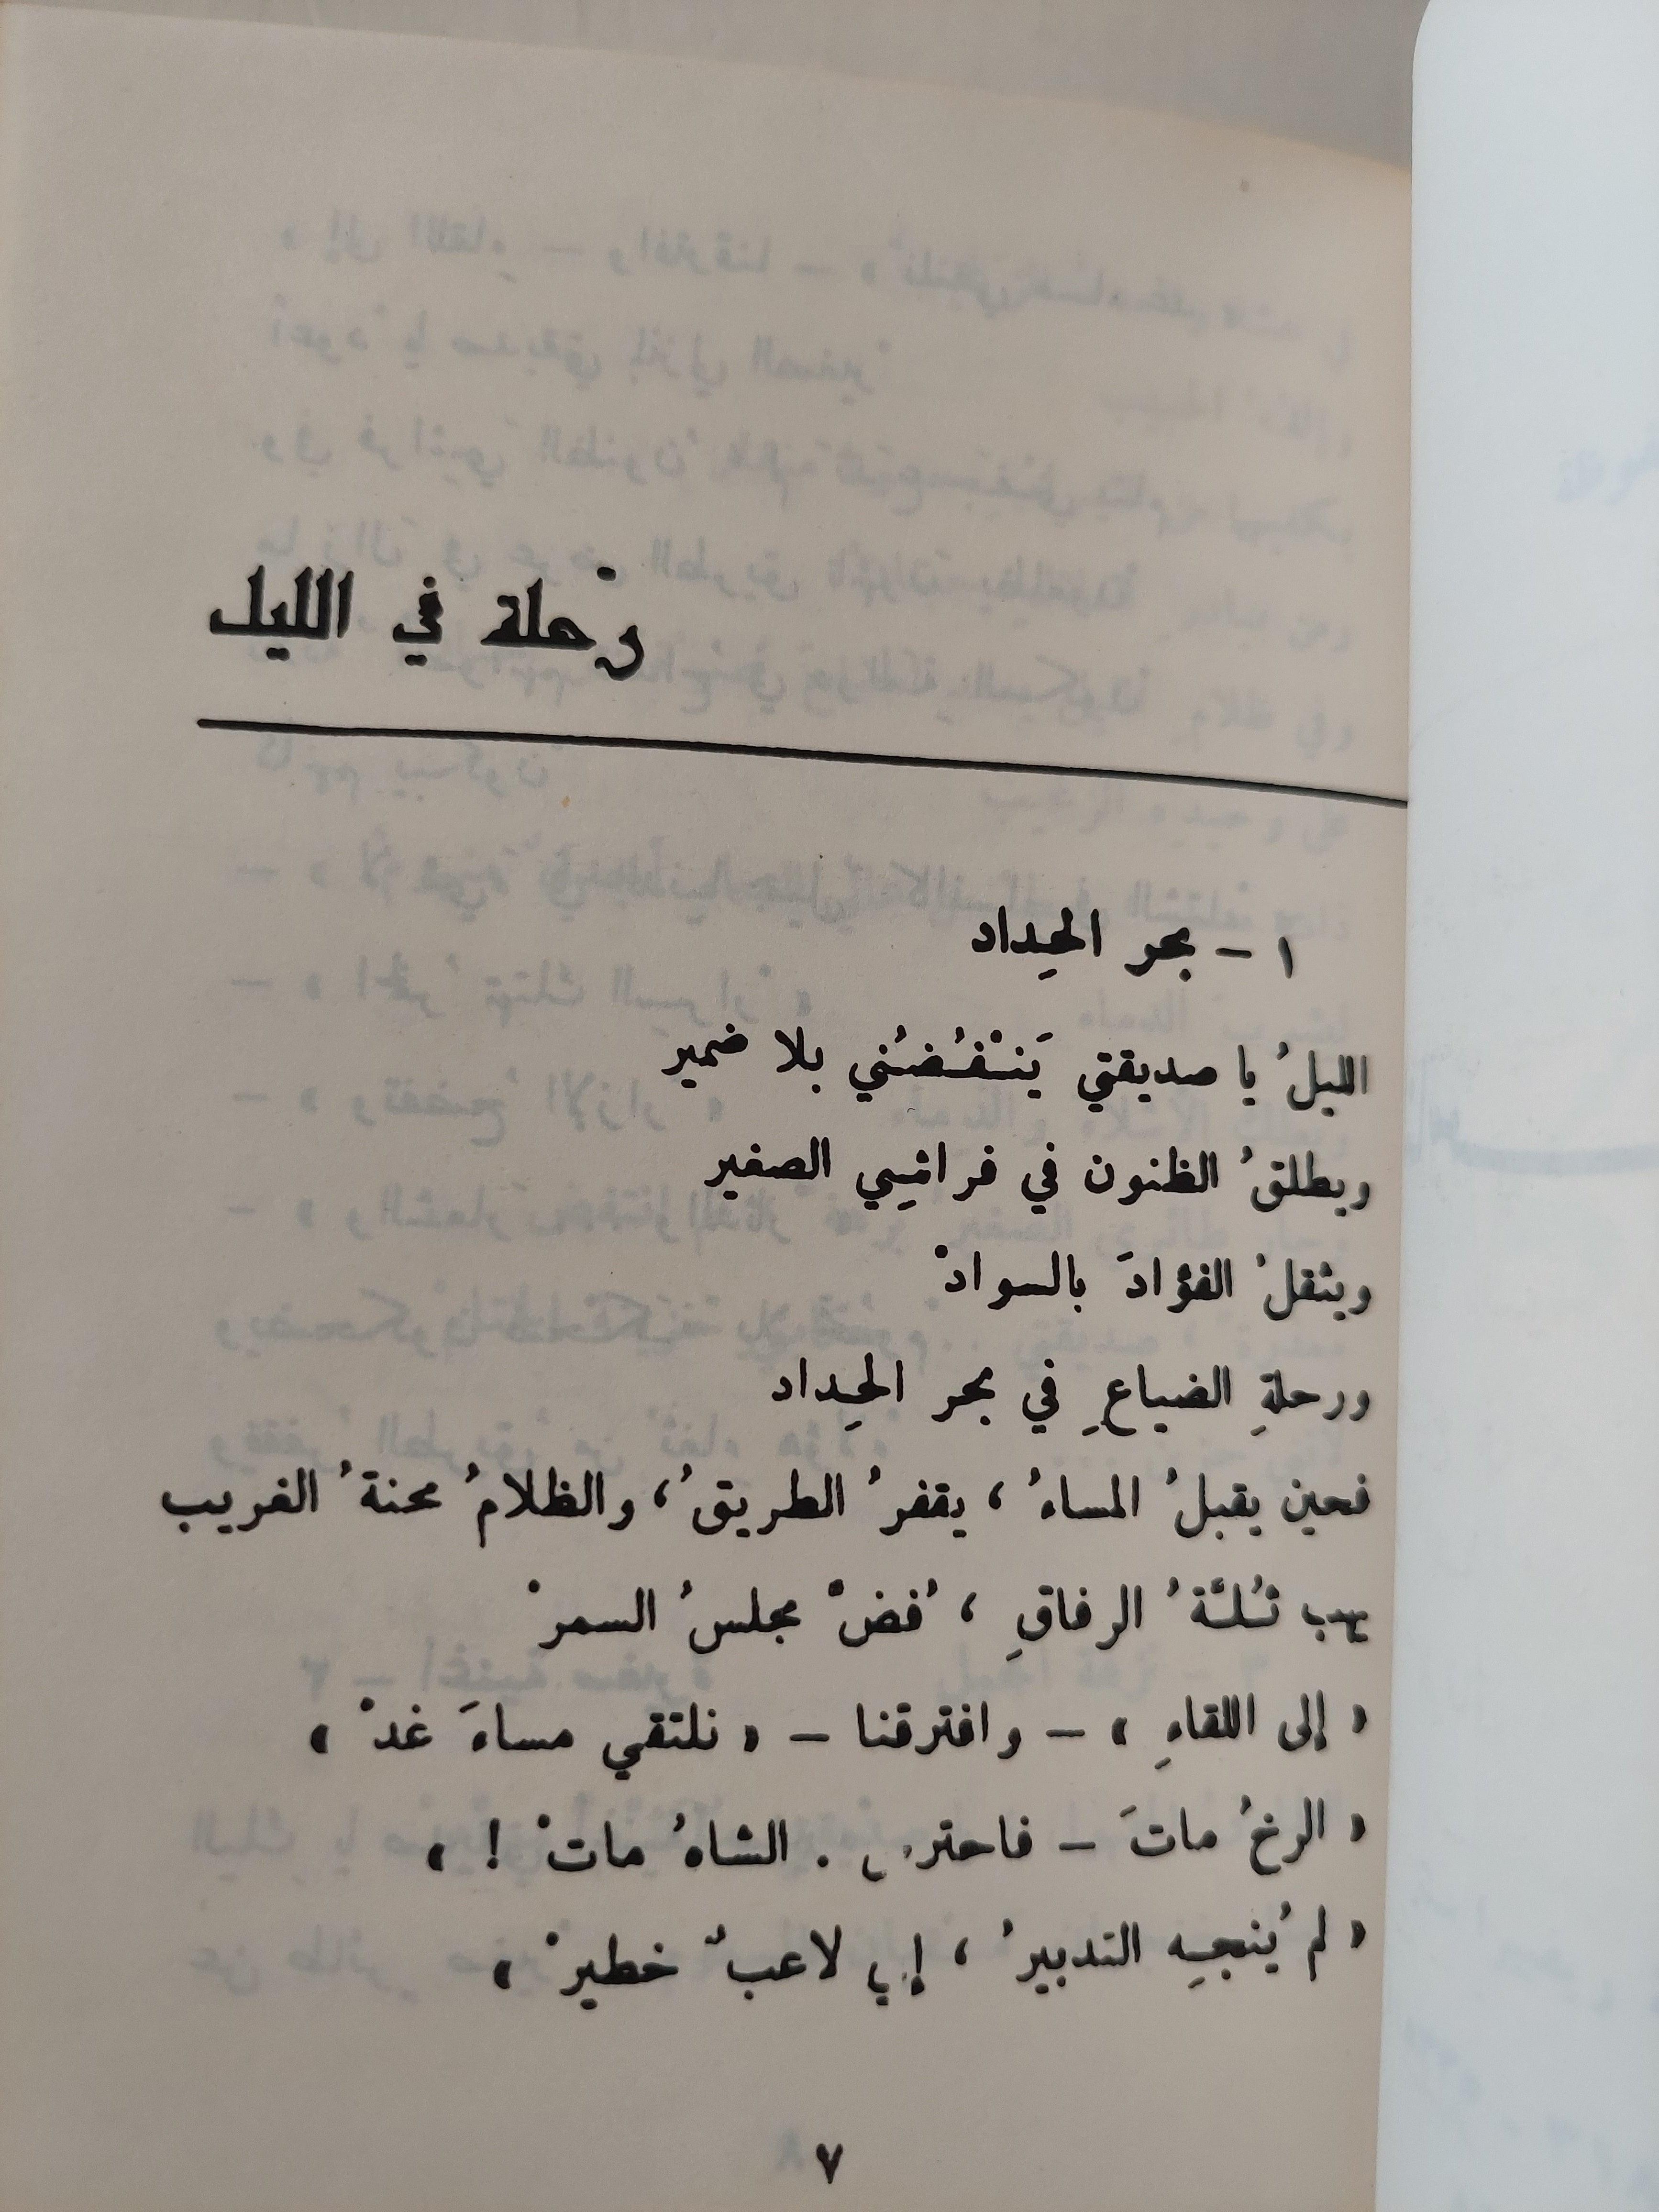 رحلة في الليل
١ - بحر الحِداد
الليلُ يا صديقتي يَنْفُضُني بلا ضمير
ويطلقُ الظنون في فراشِي الصغير
ويثقلُ الفؤادَ بالسوادْ
ورحلةِ الضياعِ في بحر الحِداد
فحين يقبلُ المساءُ ، يقفرُ الطريقُ ، والظلامُ محنةُ الغريب
يهب ثُلَّةُ الرفاقِ ، فُضّ مجلسُ السمرْ
« إلى اللقاءِ » - وافترقنا - « نلتقي مساءَ غدْ »
« الرخُ ماتَ - فاحترس . الشاهُ ماتْ ! »
« لم يُنجِهِ التدبيرُ ، إني لاعبٌ خطيرْ »
٧